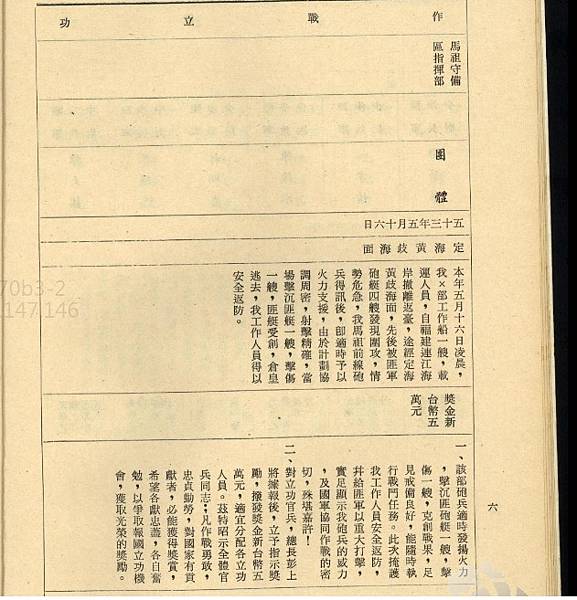 作戰立功
馬祖守備
區指揮部
團體
五十三年五月十六日
定海黃歧海面
本年五月十六日凌晨，
我×部工作船一艘，載
運人員，自福建連江海
岸撤離返臺，途經定海
黃歧海面，先後被匪軍
砲艇四艘發現圍攻，情
勢危急，我馬祖前線砲
兵得訊後，卽適時予以
火力支援，由於計劃協
調周密，射擊精確，當
場擊沉匪艇一艘，擊傷
一艘，匪艇受創，倉皇
逃去，我工作人員得以
安全返防。
獎金新
台幣五
萬元
一、該部砲兵適時發揚火力
，擊沉匪砲艇一艘，擊
傷一艘，克創戰果，足
見戒備良好，能隨時執
行戰鬥任務。此次掩護
我工作人員安全返防，
幷給匪軍以重大打擊，
實足顯示我砲兵的威力
，及國軍協同作戰的密
切，殊堪嘉許！
二、對立功官兵，總長彭上
將據報後，立予指示獎
勵，撥發獎金新台幣五
萬元，適宜分配各立功
人員。茲特昭示全體官
兵同志；凡作戰勇敢，
忠貞勤勞，對國家有貢
獻者，必能獲得獎賞，
希望各獻忠藎，各自奮
勉，以爭取報國立功機
會，獲取光榮的獎勵。
六
70b3-2
147.146